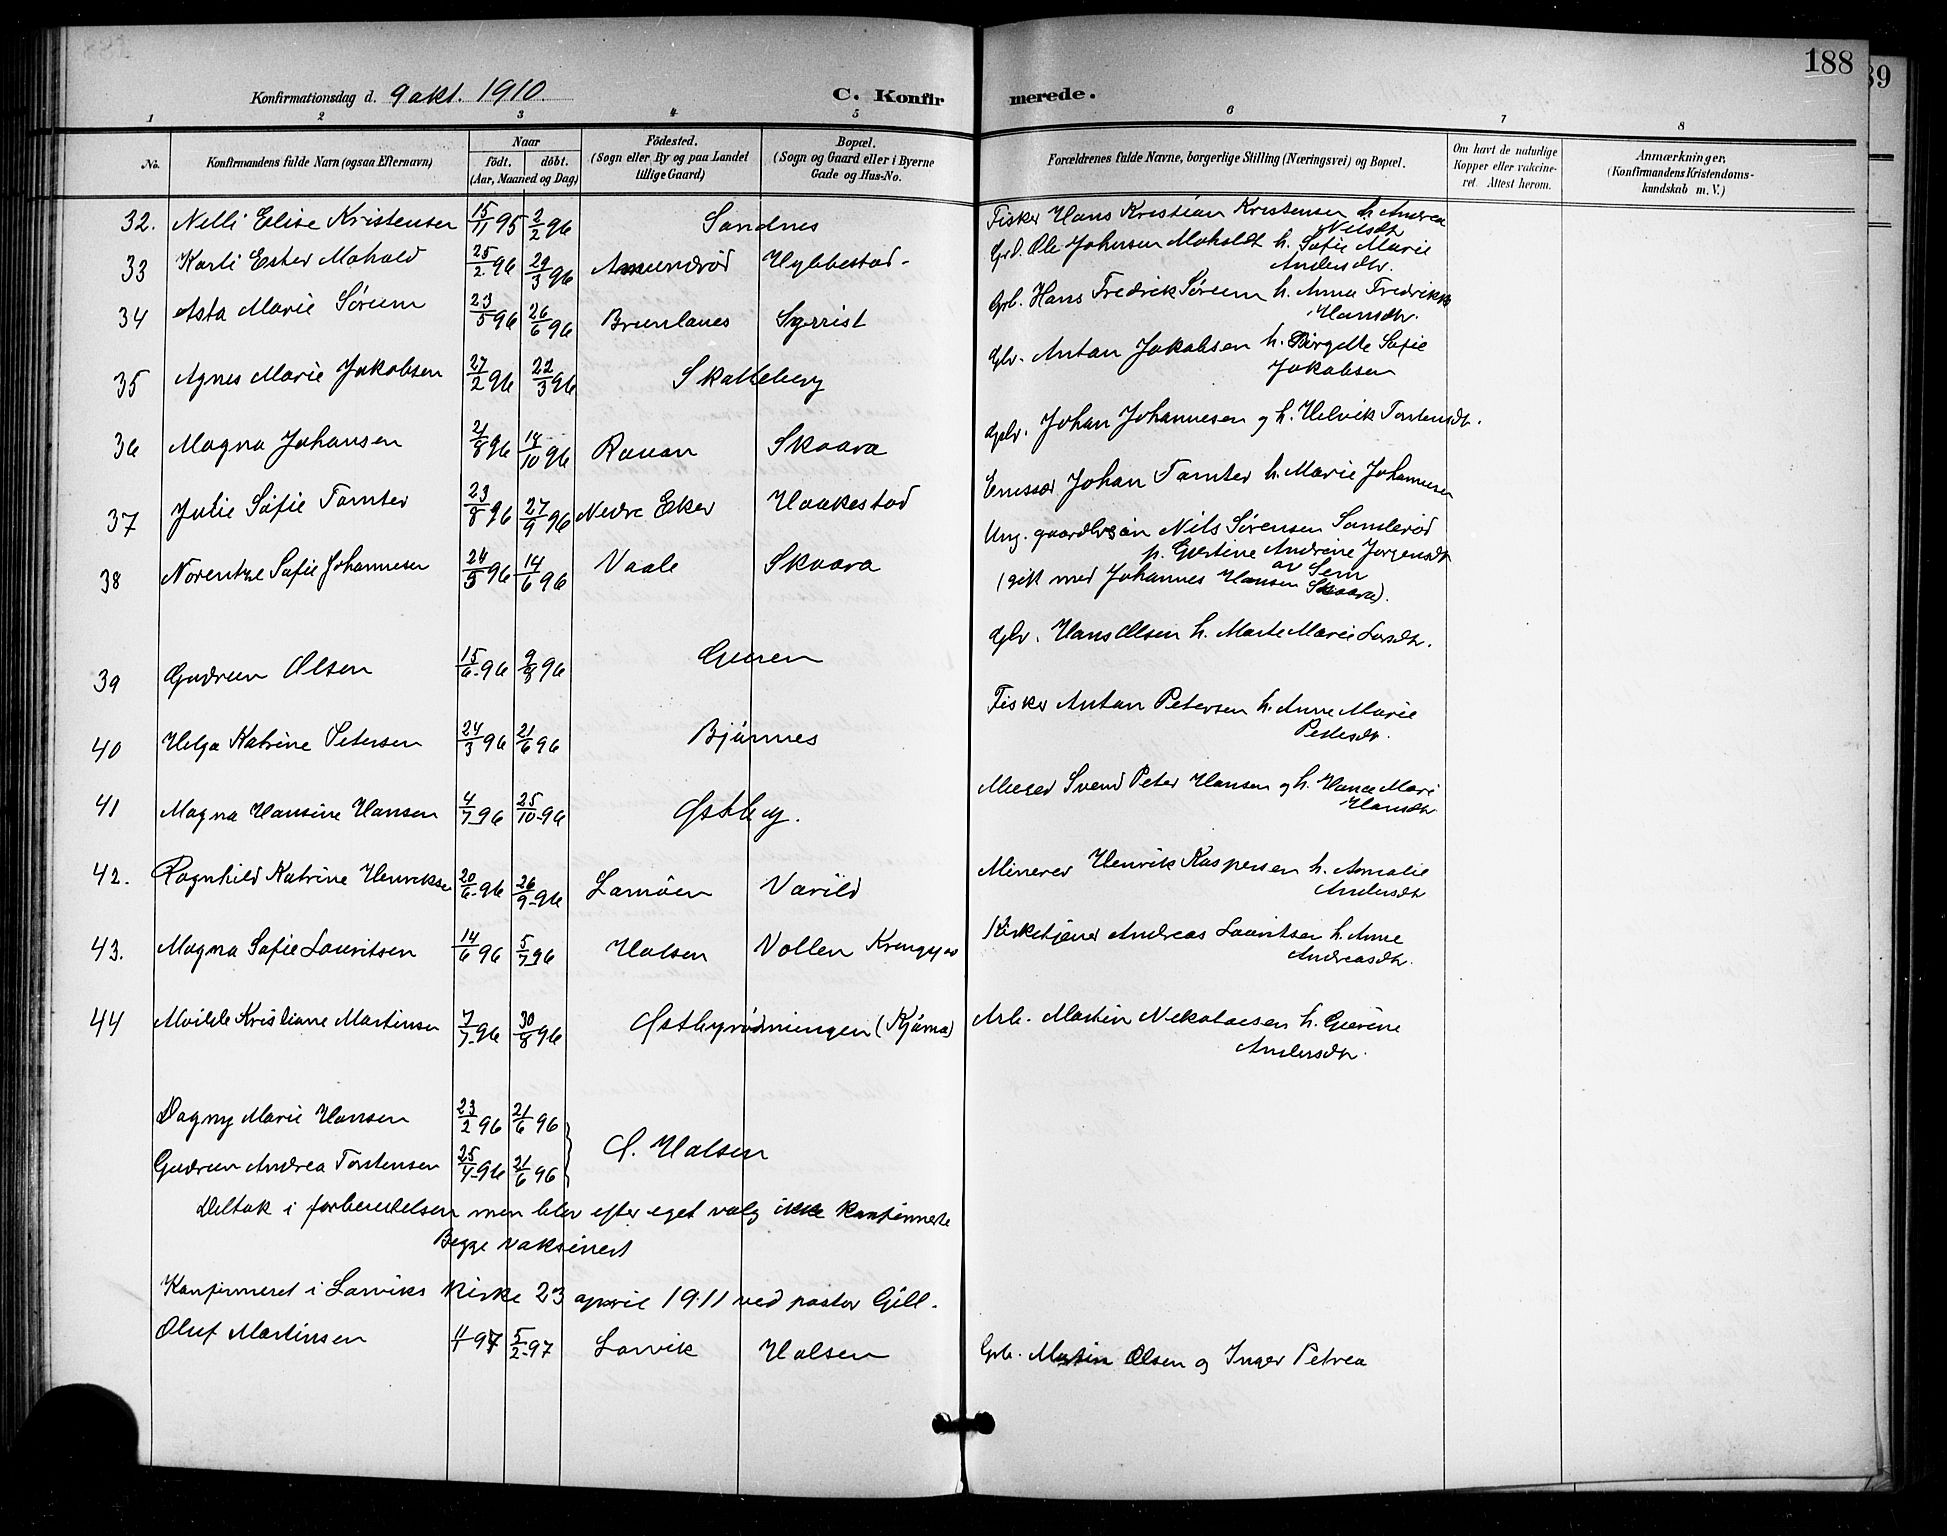 188
Konfirmationsdag d. 9 okt. 1910. C. Konfirmerede.
1 2 3 4 5 6 7 8
No. Konfirmandens fulde Navn (ogsaa Efternavn) Naar født. døbt. (Aar, Maaned og Dag) Fødested. (Sogn eller By og paa Landet tillige Gaard) Bopæl. (Sogn og Gaard eller i Byerne Gade og Hus-No. Forældrenes fulde Navne, borgerlige Stilling (Næringsvei) og Bopæl. Om havt de naturlige Kopper eller vakcineret. Attest herom. Anmærkninger. (Konfirmandens Kristendomskundskab m. V.)
32. Nelli Elise Kristensen 15/11 95 2/2 96 Sandnes Fisker Hans Kristian Kristensen h. Andrea
Nilsdtr
33 Karli Ester Mahold 25/2 96 29/3 96 Amundrød Hybbestad - Grd. Ole Johnsen Moholdt h. Sofie Marie
Andersdtr.
34 Asta Marie Sørum 23/5 96 26/6 96 Brunlanes Sgrrist Grb. Hans Fredrik Sørum h. Anna Fredrikke
Hansdtr.
35 Agnes Marie Jakobsen 27/2 96 22/3 96 Skatteberg Glv. Anton Jakobsen h. Birgette Sofie
Jakobsen
36 Magna Johansen 21/8 96 18/10 96 Rauan Skaara Johan Johannesen og h. Helvik Torstensdtr.
37 Julie Sofie Tamter 23/8 96 27/9 96 Nedre Eker Haakestad Emissær Johan Tamter h. Marie Johannesen
38 Norentze Sofie Johannesen 24/5 96 14/6 96 Vaale Skaara Ung. gaardbrsøn Nils Sørensen Sanderød
p. Gustine Andrine Jørgensdtr
av Sem
(gik med Johannes Hansen Skaara).
39 Gudrun Olsen 15/6 - 96 9/8 96 Guren Glv. Hans Olsen h. Marte Marie Larsdtr.
40 Helga Katrine Petersen 24/3 96 21/6 96 Bjønnes Fisker Anton Petersen h. Anne Marie
Pedersdtr.
41 Magna Hansine Hansen 4/7 96 25/10 - 96 Østby. Murer Svend Peter Hansen og h. Hanna Mari
Hansdtr
42. Ragnhild Katrine Henriksen 20/6 - 96 26/9 - 96 Lamøen Varild Minerer Henrik Kaspersen h. Amalie
Andersdtr
43. Magna Sofie Lauritsen 14/6 96 5/7 96 Halsen Vollen Kirketjener Andreas Lauritsen h. Anne
Andreasdtr.
44 Kristiane Martinsen 7/7 - 96 30/8 96 Østbyrødningen (Kjøma) Arb. Martin Nikolaisen h. Gurine
Andersdtr.
Dagny Marie Hansen 23/2 96 21/6 96
Gudrun Andrea Torstensen 25/4 - 96 21/6 96 } Ø. Halsen
Deltok i forberedelsen men blev efter eget valg ikke konfirmerte
Begge vaksinert
Konfirmeret i Larviks kirke 23 april 1911 ved pastor Gill.
Oluf Martinsen 97 5/2 - 97 Larvik Halsen Grb. Martin Olsen og Inger Petrea